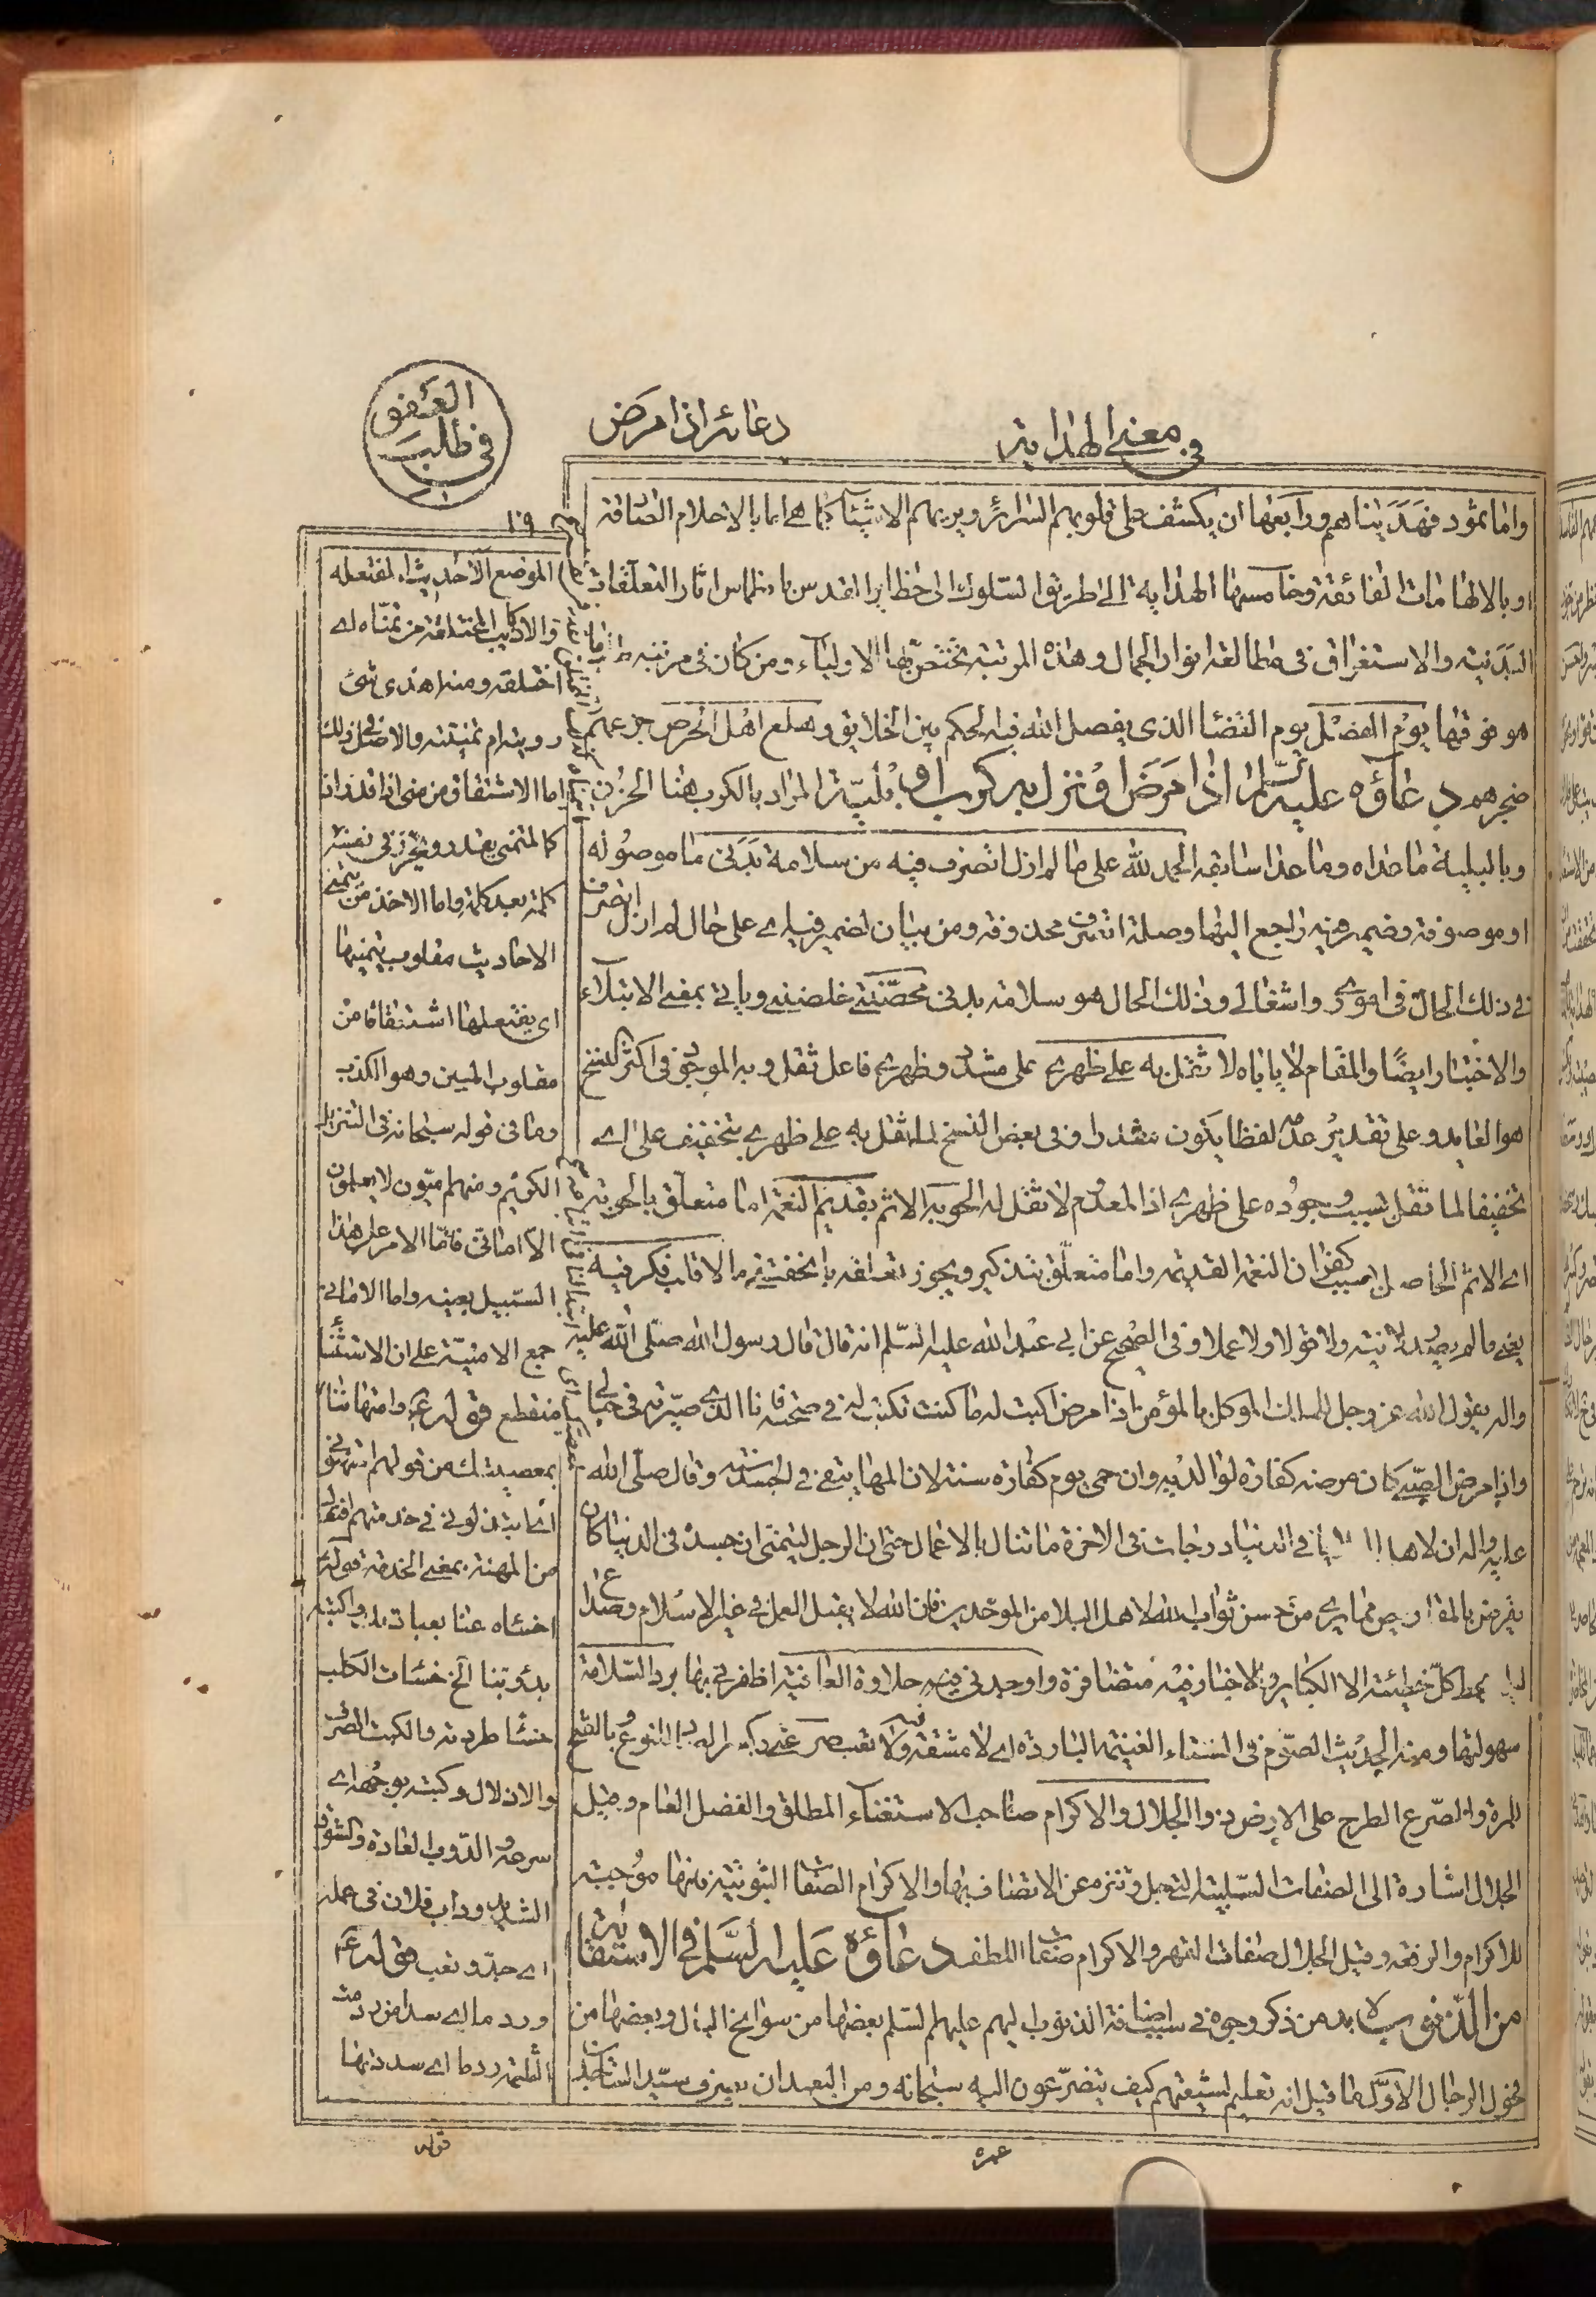 في معنى الهداية
دعائه اذا مرض
العفو
في طلب
١٩
واما ثمود فهديناهم ورابعها ان يكشف على قلوبهم السرائر ويريهم الاشياء كما هى اما بالاحلام الصادقة
او بالالهامات الفائقة وخامسها الهداية الى طريق السلوك الى حظاير القدس بانطماس اثار التعلقات
البدنية والاستغراق في مطالعة انوار الجمال وهذه المرتبة تختص بها الاولياء ومن كان في مرتبة
هو فوقها يوم الفصل يوم القضاء الذى يفصل الله فيه الحكم بين الخلايق وهلع اهل الحرص جزعهم
ضجرهم دعاؤه عليه السلام اذا مرض او نزل به كرب او بلية المراد بالكرب هنا الحزن
وبالبلية ما عداه وما عدا سابقه الحمد لله على ما لم ازل اتصرف فيه من سلامة بدنى ما موصوله
او موصوفة وضمير فيه راجع اليها وصلة اتصرف محذوفة ومن بيان لضمير فيه اى على حال لم ازل اتصرف
فى ذلك الحال فى امورى واشغالى وذلك الحال هو سلامة بدنى محصتنى خلصتنى وياتى بمعنى الابتلاء
والاختبار ايضا والمقام لا ياباه لا تثقل به على ظهرى على مشدد وظهرى فاعل ثقل وبه الموجود فى اكثر النسخ
هو العايد وعلى تقدير عدمه لفظا يكون مقدرا وفى بعض النسخ لما ثقل به على ظهرى بتخفيف على اى
تخفيفا لما ثقل بسبب وجوده على ظهرى اذ المعدوم لا ثقل له الحوبة الاثم بقديم النعمة اما متعلق بالحوبة
اى الاثم الحاصل بسبب كفران النعمة القديمة واما متعلق بتذكير ويجوز تعلقه بالخفة ما لا قلب فكر فيه
يعنى ما لم يصدر لا نية ولا قولا ولا عملا وفى الصحيح عن ابى عبد الله عليه السلام انه قال قال رسول الله صلى الله عليه
واله يقول الله عز وجل للملك الموكل بالمؤمن اذا مرض اكتب له ما كنت تكتب له فى صحته فانا الذى صيرته فى حبالى
واذا مرض الصبى كان مرضه كفارة لوالديه وان حمى يوم كفارة سنة لان المها يبقى فى الجسد سنة وقال صلى الله
عليه واله ان لاهل البلايا فى الدنيا درجات فى الاخرة ما تنال بالاعمال حتى ان الرجل ليتمنى ان جسده فى الدنيا كان
يقرض بالمقاريض مما يرى من حسن ثواب الله لاهل البلا من الموحدين فان الله لا يقبل العمل فى غير الاسلام وصداع
ليلة يحط كل خطيئة الا الكباير والاخبار فيه متضافرة واوجدنى فيه حلاوة العافية اظفرنى بها برد السلامة
سهولتها ومنه الحديث الصوم فى الشتاء الغنيمة الباردة اى لا مشقة فيه ولا تعب صرعتى
للمرة والصرع الطرح على الارض ذو الجلال والاكرام صاحب الاستغناء المطلق والفضل العام وقيل
الجلال اشارة الى الصفات السلبية التى جل وتنزه عن الاتصاف بها والاكرام الصفات الثبوتية فانها موجبة
للاكرام والرفعة وقيل الجلال صفات القهر والاكرام صفات اللطف دعاؤه عليه السلم فى الاستقالة
من الذنوب لا بد من ذكر وجوه فى سبب اضافة الذنوب اليهم عليهم السلم بعضها من سوانح البال وبعضها من
فحول الرجال الاول ما قيل انه تعليم لشيعتهم كيف يتضرعون اليه سبحانه ومن البعيد ان يصرف سيد الساجدين
عمره
الموضع الاحاديث المفتعله
والاكاذيب المختلقة من تمناه اى
اختلقه ومنه اهذى شئ
رويته ام تمنيته والاصل فى ذلك
اما الاشتقاق من منى اذا قدر
كالمتمنى يقدر ويحرز فى نفسه
كلمة بعد كلمة واما الاخذ من يتمنى
الاحاديث مقلوب يتمينها
اى يفتعلها اشتقاقا من
مقلوب المين وهو الكذب
وما فى قوله سبحانه فى التنزيل
الكريم ومنهم اميون لا يعلمون
الا امانى فاما الامر على هذا
السبيل بعينه واما الامانى
جمع الامنية على ان الاستثناء
منقطع قوله ع وامتهاننا
بمعصيتك من قولهم امتهنونى
اى ابتذلونى فى خدمتهم افتعل
من المهنة بمعنى الخدمة قوله
اخسأه عنا بعبادتك واكبته
بدؤوبنا الخ خسأت الكلب
خسأ طردته والكبت الصرف
والاذلال وكبته بوجهه اى
صرعه الدؤب العادة والشوق
الشديد ودأب فلان فى عمله
اى جد وتعب قوله ع
وردما اى سدا من ردمت
الثلمة ردما اى سددتها
قوله